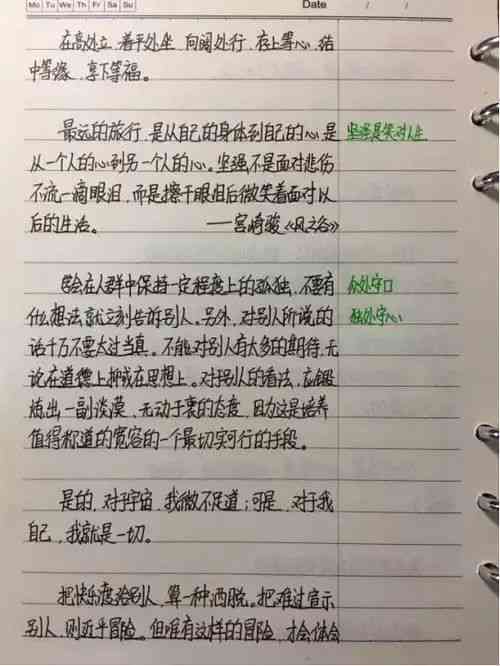 Mo Tu We Th Fr Sa Su
Date / /
在高处立，着平处坐，向阔处行，存上等心，结
中等缘，享下等福。
最远的旅行，是从自己的身体到自己的心，是
坚强是笑对人生
从一个人的心到另一个人的心。坚强不是面对悲伤
不流一滴眼泪，而是擦干眼泪后微笑着面对以
后的生活。 ——宫崎骏《风之谷》
学会在人群中保持一定程度上的孤独，不要有
众处守口
什么想法就立刻告诉别人。另外，对别人所说的
独处守心
话千万不要太过当真。不能对别人有太多的期待，无
论在道德上抑或在思想上。对别人的看法，应锻
炼出一副淡漠，无动于衷的态度，因为这是培养
值得称道的宽容的一个最切实可行的手段。
是的，对于宇宙，我微不足道；可是，对于我
自己，我就是一切。
把快乐度给别人，算一种洒脱。把难过宣示
别人，则近乎冒险。但唯有这样的冒险，才会体会